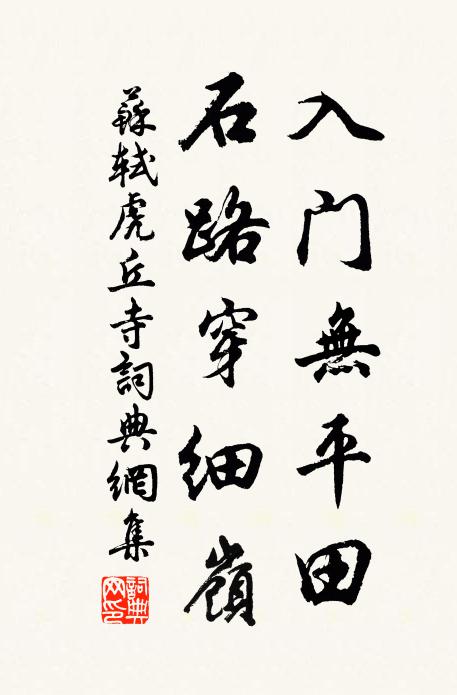 入門無平田
石路穿細嶺
蘇軾虎丘寺詞典網集
詞典網印